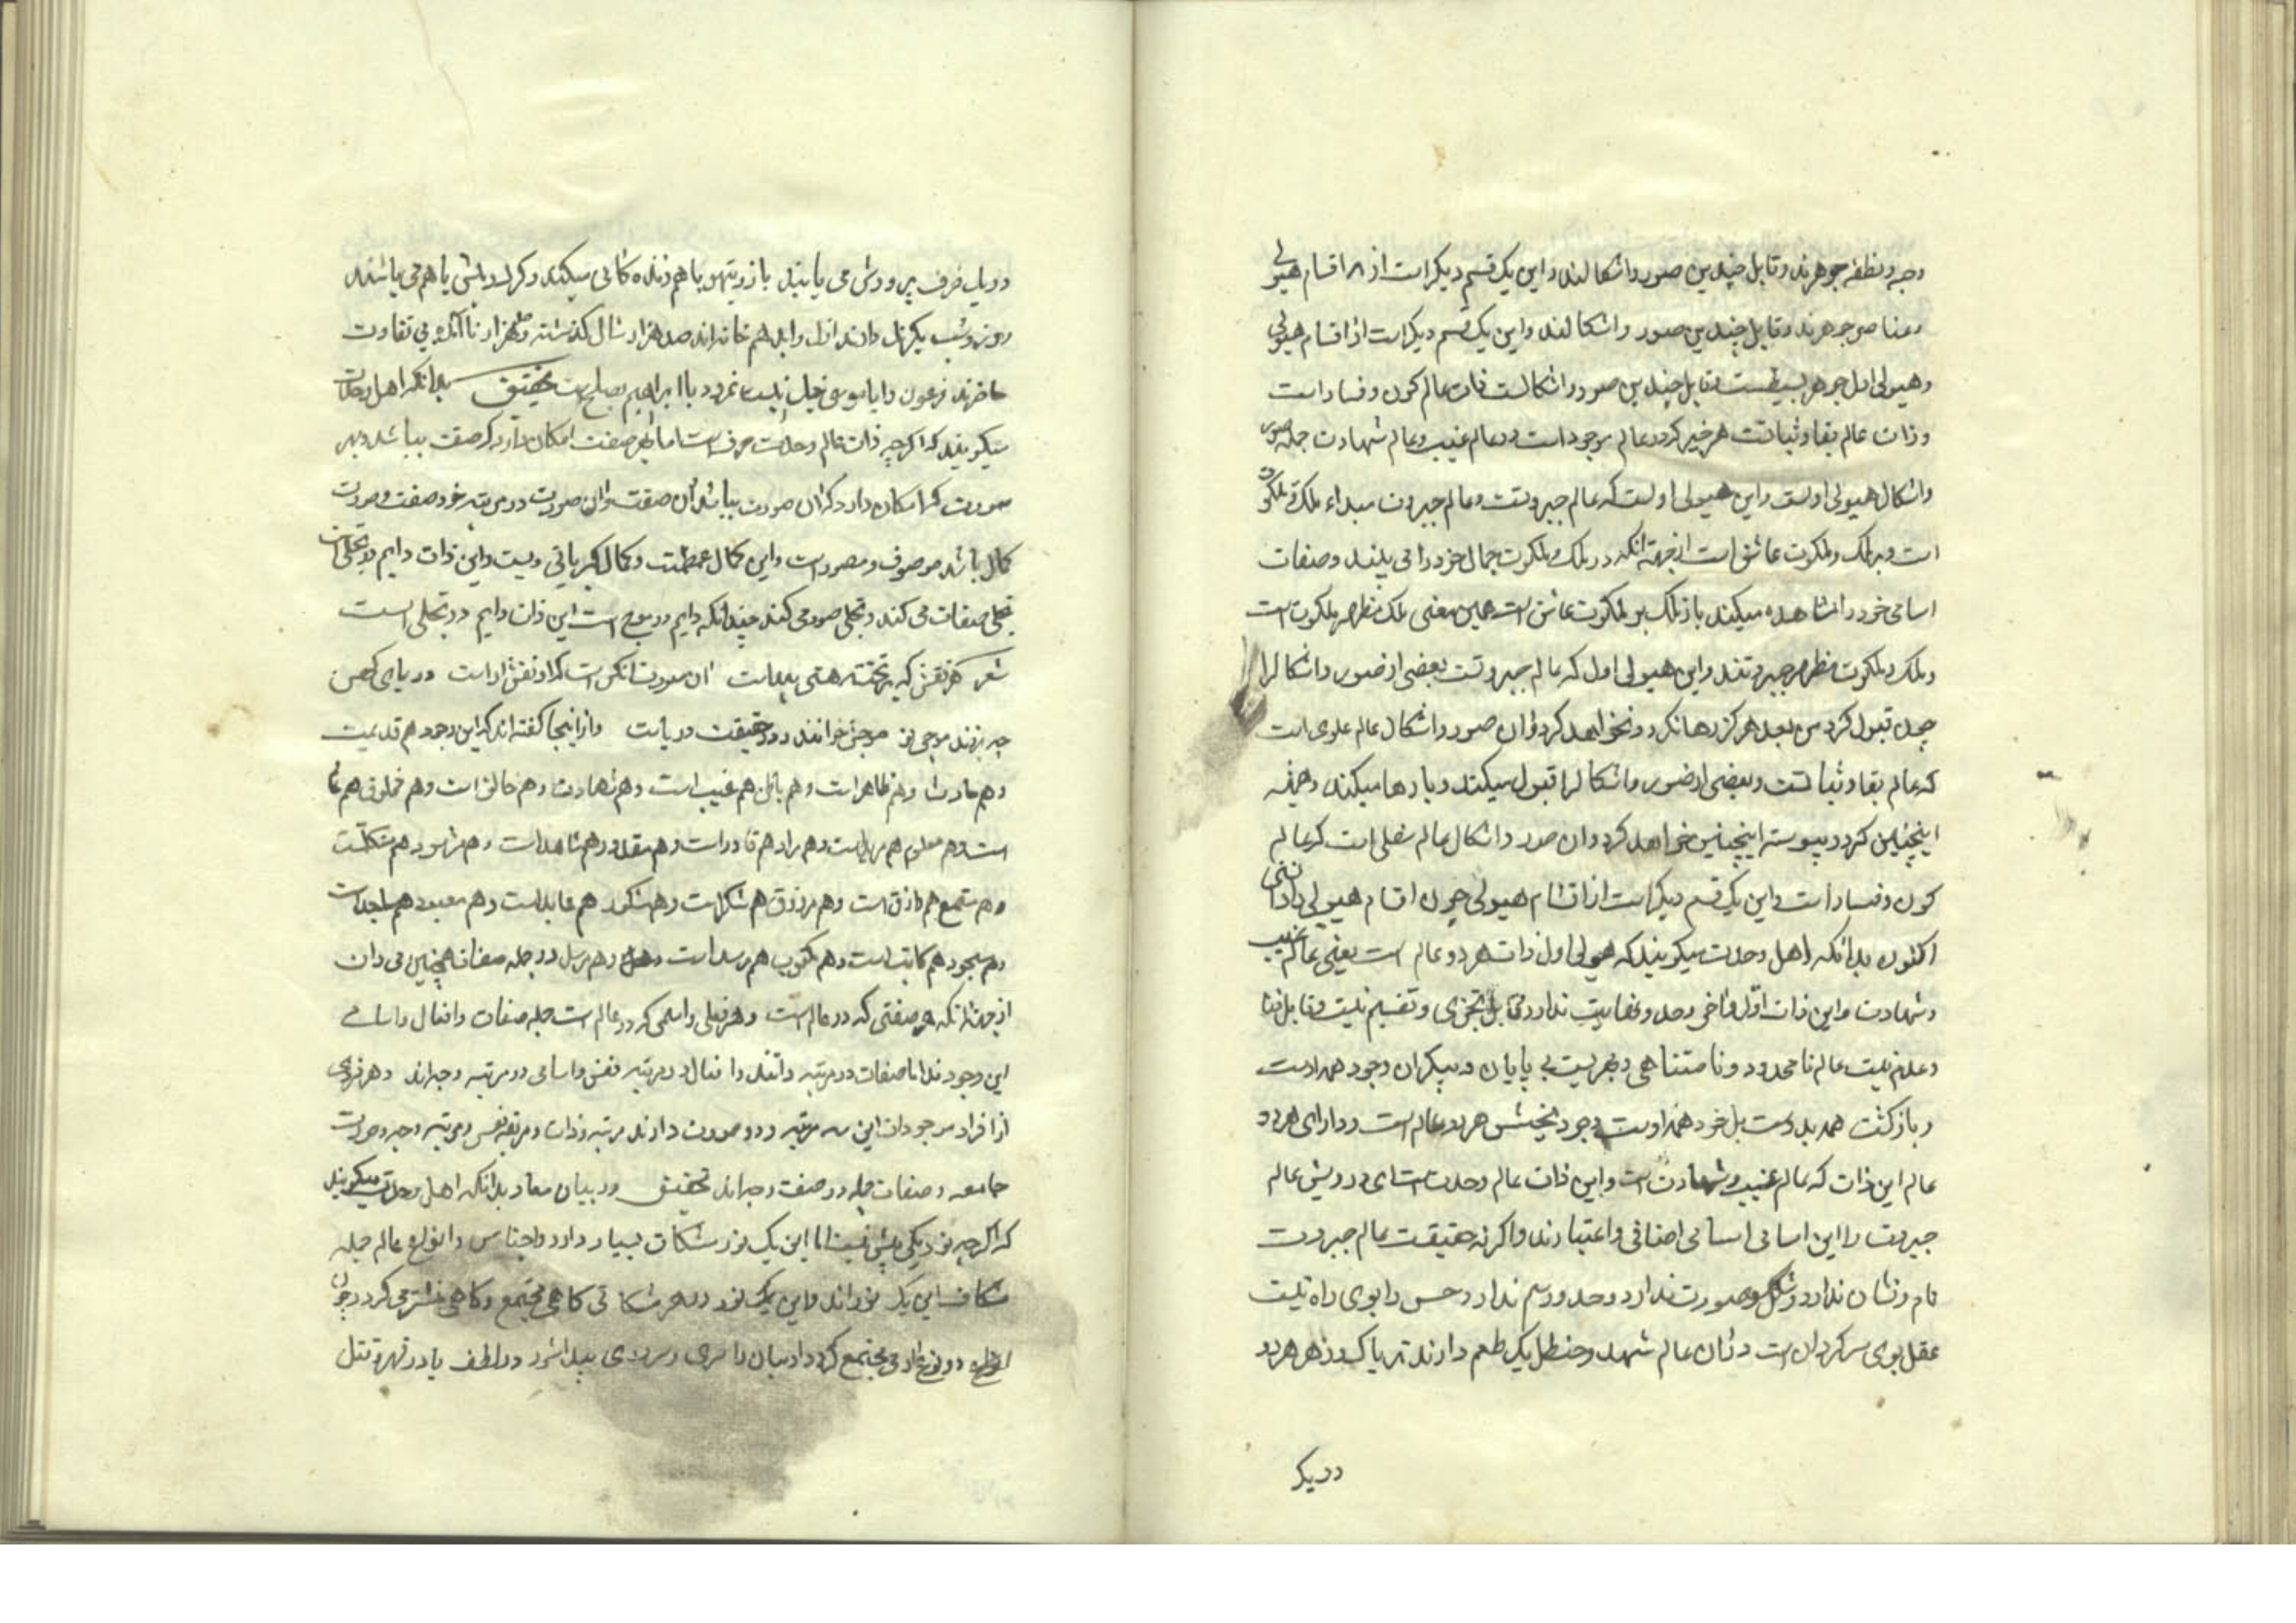 وجبه و نطفه جوهرند و قابل چندین صور و اشکالند و این یک قسم دیگر است از اقسام هیولی
و عناصر جوهرند و قابل چندین صور و اشکالند و این یک قسم دیگر است از اقسام هیولی
و هیولی اول جوهر بسیطست و قابل چندین صور و اشکالست ذات عالم کون و فساد است
و ذات عالم بقا و ثباتست هر چیز که در عالم موجود است در عالم غیب و عالم شهادت جمله صور
و اشکال هیولی اولست و این هیولی اولست که عالم جبروتست و عالم جبروت مبداء ملک و ملکوت
است و بر ملک و ملکوت عاشق است از جهة انکه در ملک و ملکوت جمال خود را می بیند و صفات
اسامی خود را مشاهده میکند باز ملک بر ملکوت عاشق است همین معنی ملک مظهر ملکوت است
و ملک و ملکوت مظهر جبروتند و این هیولی اول که عالم جبروتست بعضی از صور و اشکال را
چون قبول کرد من بعد هرگز رها نکرد و نخواهد کرد و ان صور و اشکال عالم علوی است
که عالم بقا و ثباتست و بعضی از صور و اشکال را قبول میکند و باز رها میکند و همیشه
اینچنین کرد و پیوسته اینچنین خواهد کرد و ان صور و اشکال عالم سفلی است که عالم
کون و فساد است و این یک قسم دیگر است از اقسام هیولی چون اقسام هیولی را دانستی
اکنون بدانکه اهل وحدت میگویند که هیولی اول ذات هر دو عالم است یعنی عالم غیب
و شهادت و این ذات اول و اخر و حد و نهایت ندارد و قابل تجزی و تقسیم نیست و قابل فنا
و عدم نیست عالم نامحدود و نامتناهی و بحریست بی پایان و بیکران وجود همه از اوست
و بازگشت همه بدوست بل خود همه اوست وجود بخش هر دو عالم است و دارای هر دو
عالم این ذات که عالم غیب و شهادت است و این ذات عالم وحدت است ای درویش عالم
جبروت را این اسامی اسامی اضافی و اعتبارند و اگر نه حقیقت عالم جبروت
نام و نشان ندارد و شکل و صورت ندارد و حد و رسم ندارد و حس را بوی راه نیست
عقل بوی سرگردان است در ان عالم شهد و حنظل یک طعم دارند تریاک و زهر هر دو
در یک
در یک ظرف پرورش می یابند باز و تیهو با هم زنده کانی میکنند و گرگ و میش با هم می باشند
روز و شب یکرنک دارند ازل و ابد هم خانه اند صد هزار سال گذشته و صد هزار ناآمده بی تفاوت
حاضرند فرعون را با موسی جنگ نیست نمرود با ابراهیم بصلح است تحقیق بدانکه اهل وحدت
میگویند که اگر چه ذات عالم وحدت صرف است اما بهر صفت امکان دارد که صفت بباشد و بهر
صورت که امکان دارد که ان صورت بباشد ان صفت و ان صورت در مرتبه خود صفت و صورت
کمال باشد موصوف و مصور است و این کمال عظمت و کمال کبریائی ویست و این ذات دایم در تجلی است
تجلی صفات می کند و تجلی صور می کند چندانکه دایم در موج است این ذات دایم در تجلی است
شعر هر نقش که بر تخته هستی پیداست ان صورت انکس است که ان نقش اراست دریای کهن
چو بر زند موجی نو موجش خوانند و در حقیقت دریاست و از اینجا گفته اند که این وجود هم قدیمست
و هم حادث و هم ظاهر است و هم باطن هم غیب است و هم شهادت و هم خالق است و هم مخلوق هم عالم
است و هم معلوم هم مرید است و هم مراد هم قادر است و هم مقدور هم شاهد است و هم مشهود هم متکلمست
و هم مستمع هم رازق است و هم مرزوق هم شاکر است و هم مشکور هم عابد است و هم معبود هم ساجد است
و هم مسجود هم کاتب است و هم مکتوب هم مرسل است و هم مرسل در جمله صفات همچنین می دان
از جهة انکه هر صفتی که در عالم است و هر فعلی و اسمی که در عالم است جمله صفات و افعال و اسامی
این وجودند اما صفات در مرتبه ذاتند و افعال در مرتبه نفس و اسامی در مرتبه وجه اند و هر فردی
از افراد موجودات این سه مرتبه و دو صورت دارند مرتبه ذات و مرتبه نفس و مرتبه وجه و صورت
جامعه و صفات جمله در صفت وجه اند تحقیق در بیان معاد بدانکه اهل وحدت میگویند
که اگر چه نور یکی بیش نیست اما این یک نور مشکات بسیار دارد و اجناس و انواع عالم جمله
مشکات این یک نور اند و این یک نور در هر مشکاتی گاهی مجتمع و گاهی منتشر می گردد و چون